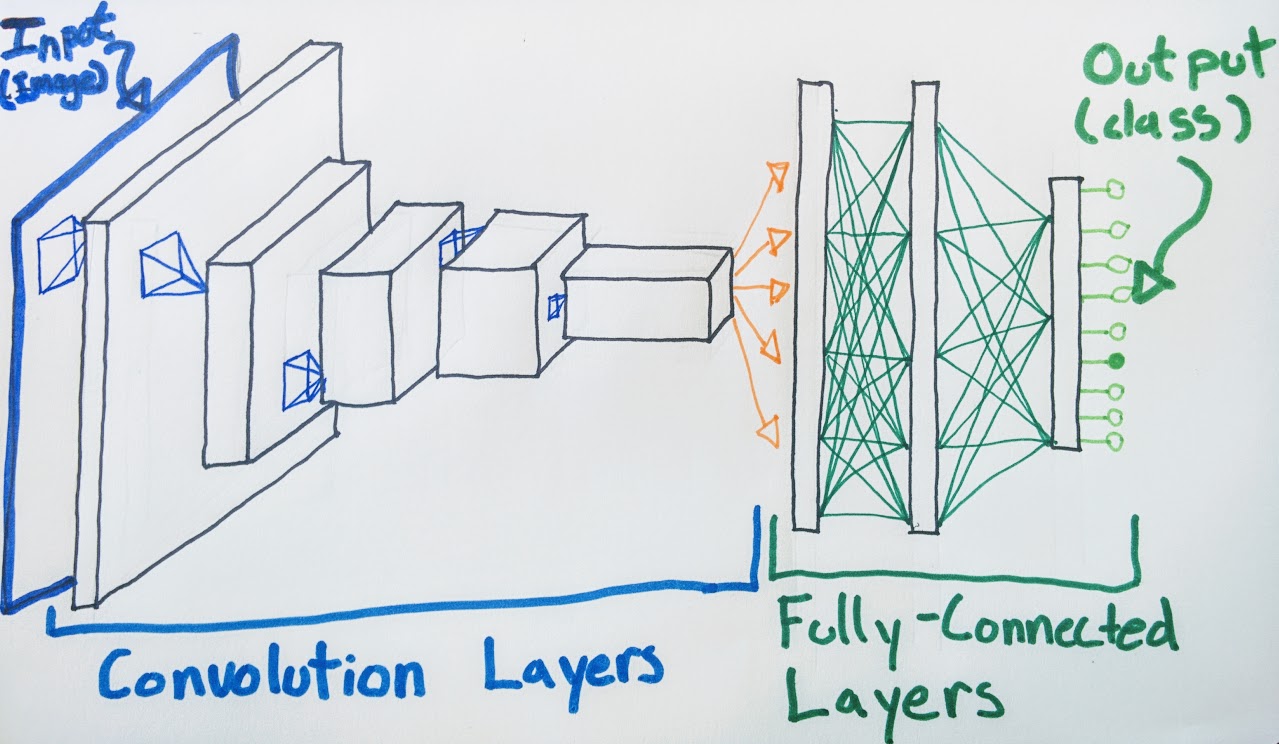 Input
(Image)
Output
(class)
Convolution Layers
Fully-Connected
Layers